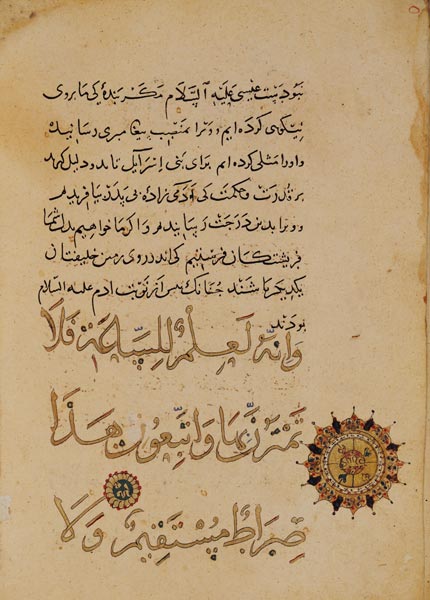 نبودست عیسی علیه السلام مکر بندهٔ کی ما بروی
نیکوی کرده ایم و ویرا بمنصب پیغامبری رسانیده
و اورا مثلی کرده ایم برای بنی اسرآیل تا بدو دلیل کیرند
بر قدرت و حکمت کی آدمی زادهٔ بی پدر بیافریدم
و ویرا بدین درجت رسانیدم و اکر ما خواهیم بدل شما
فریشتکان فرستیم کی اندر روی زمین خلیفتان
یکدیکر باشند چنانک پس از نوبت ادم علیه السلام
بودند
وَإِنَّهُ لَعِلْمٌ لِلسَّاعَةِ فَلَا
تَمْتَرُنَّ بِهَا وَاتَّبِعُونِ هَذَا
صِرَاطٌ مُسْتَقِيمٌ وَلَا